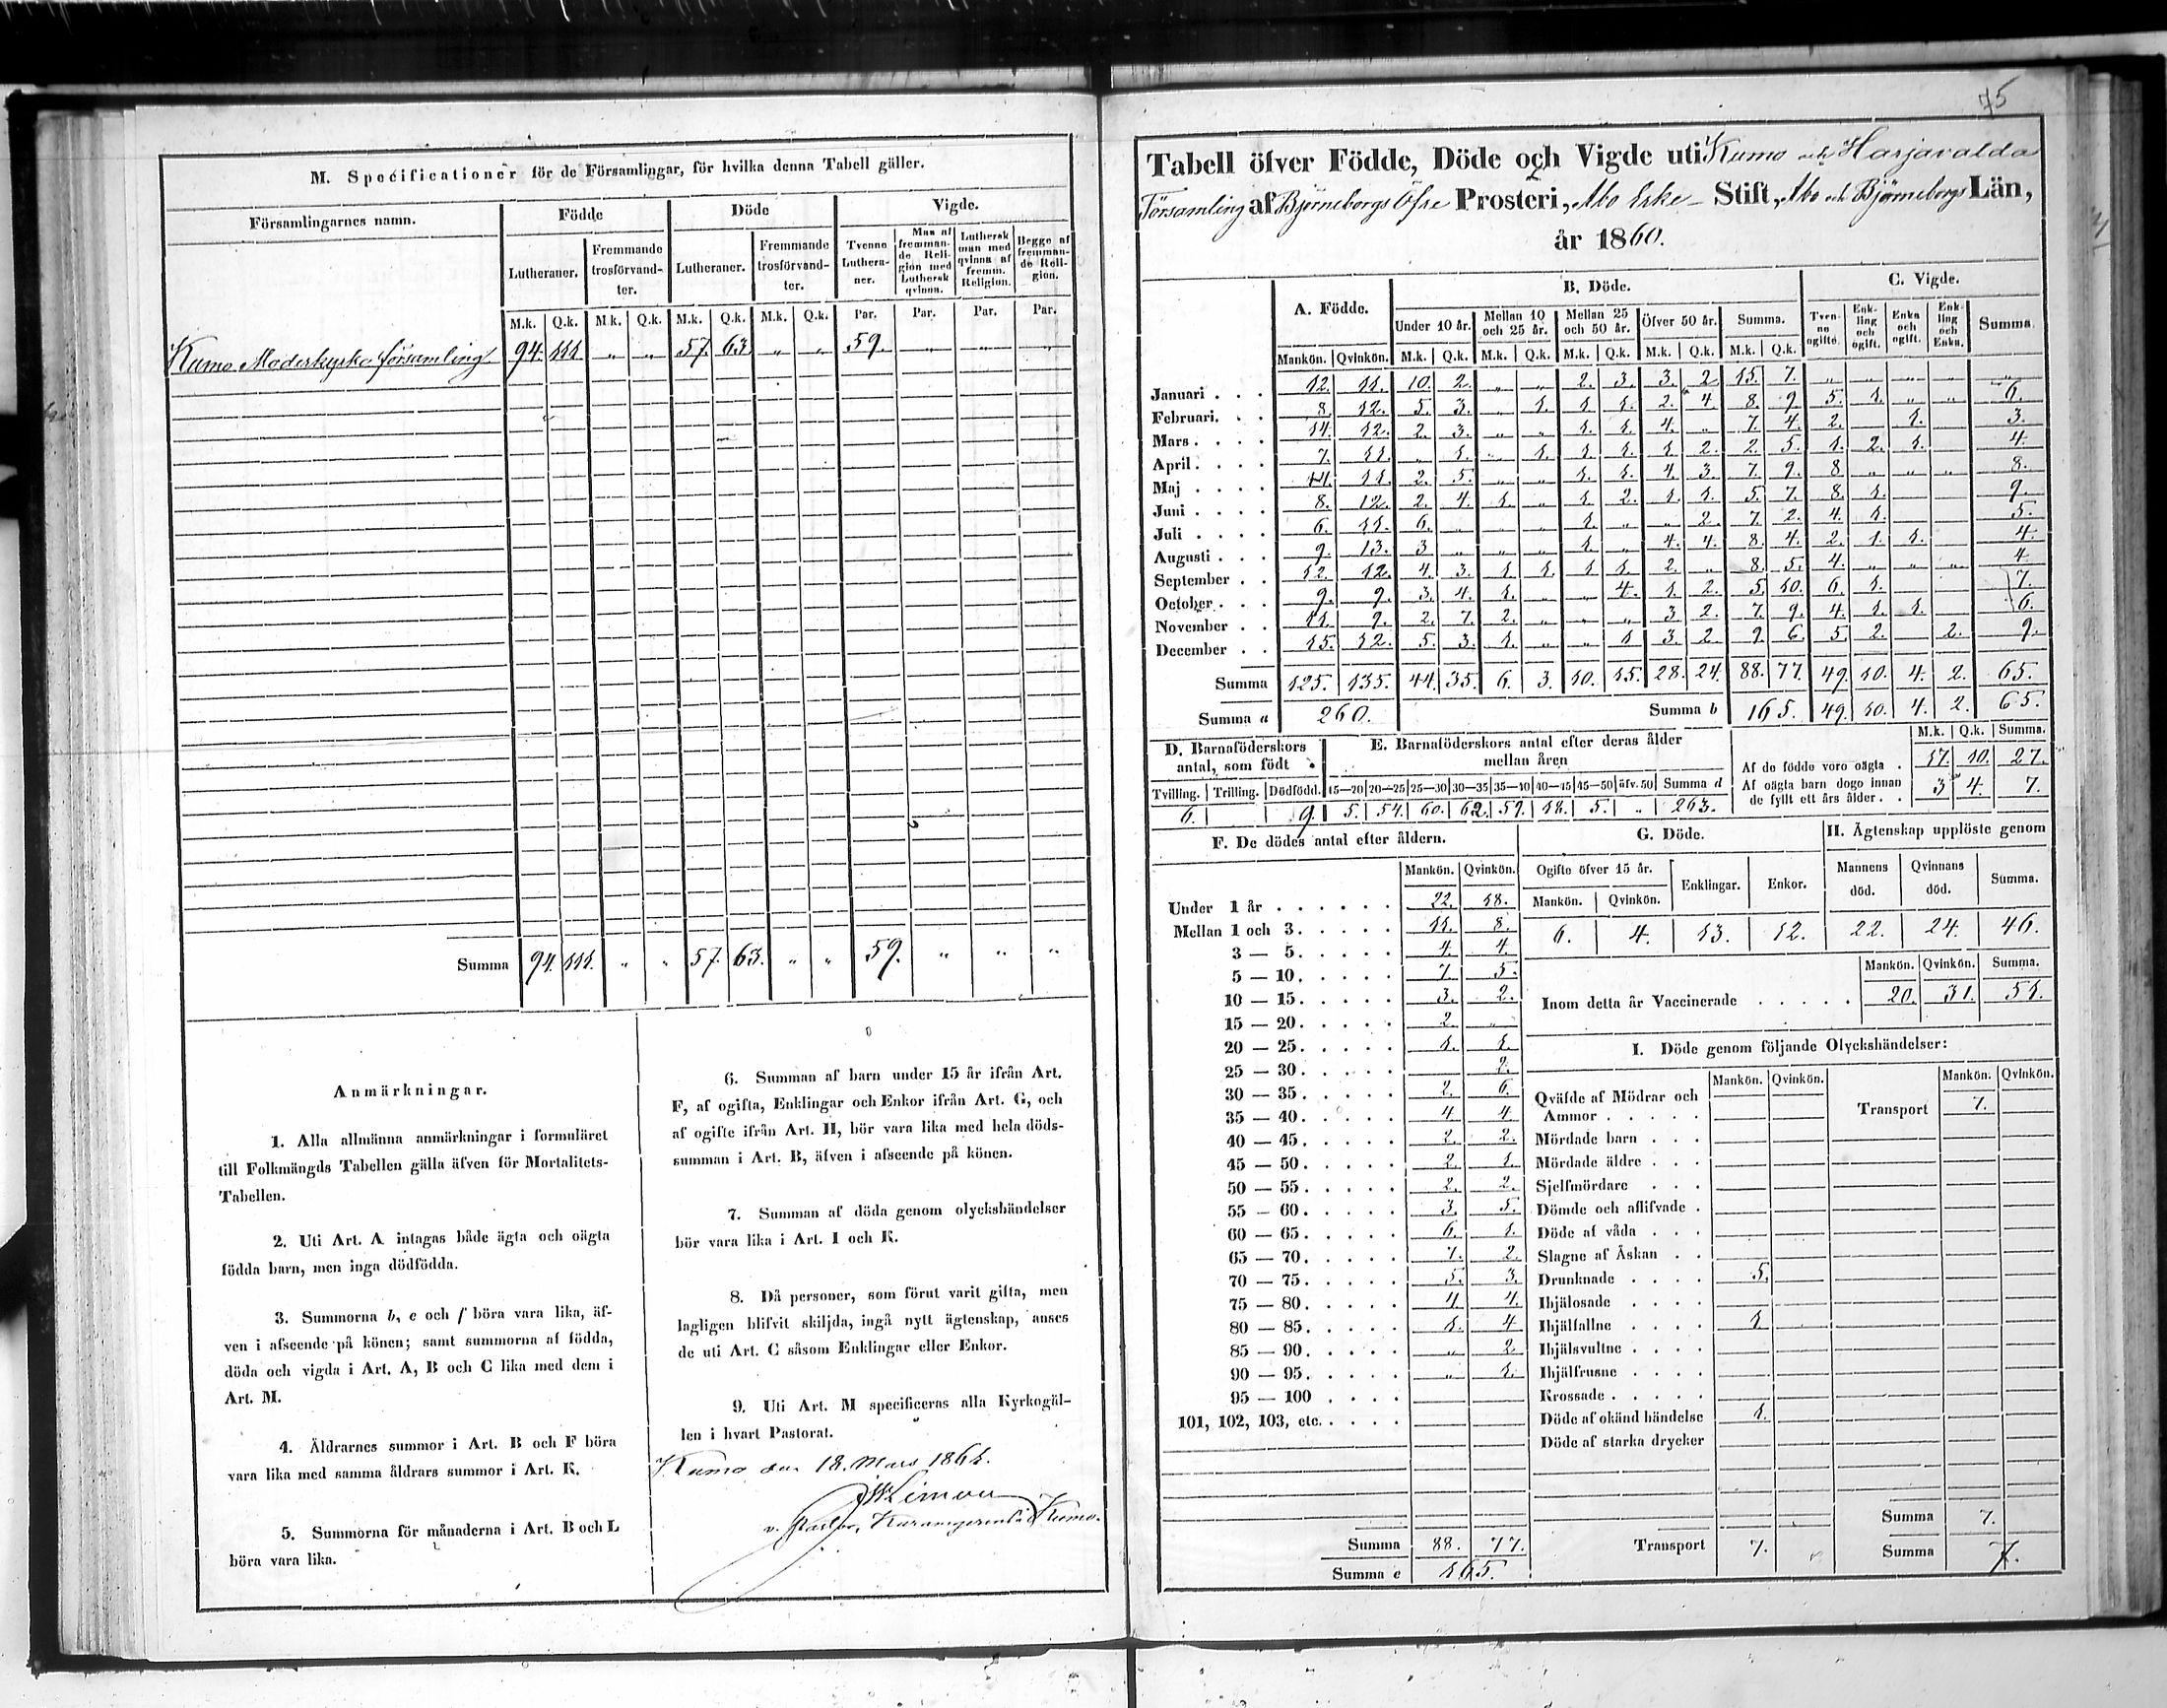 M. Specificationer för de Församlingar, för hvilka denna Tabell gäller.
Församlingarnes namn. Födde Döde Vigde.
Lutheraner. Fremmande trosförvandter. Lutheraner. Fremmande trosförvandter. Tvenne Lutheraner. Man af fremmande Religion med Luthersk qvinna. Luthersk man med qvinna af fremm. Religion. Begge af fremmande Religion.
M.k. Q.k. M.k. Q.k. M.k. Q.k. M.k. Q.k. Par. Par. Par. Par.
Kumo Moderkyrko församling 94. 111. „ „ 57. 63 „ „ 59. „ „ „
Summa 94. 111. „ „ 57. 63. „ „ 59. „ „ „
Anmärkningar.
1. Alla allmänna anmärkningar i formuläret
till Folkmängds Tabellen gälla äfven för Mortalitets-
Tabellen.
2. Uti Art. A intagas både ägta och oägta
födda barn, men inga dödfödda.
3. Summorna b, e och f böra vara lika, äf-
ven i afseende på könen; samt summorna af födda,
döda och vigda i Art. A, B och C lika med dem i
Art. M.
4. Åldrarnes summor i Art. B och F böra
vara lika med samma åldrars summor i Art. K.
5. Summorna för månaderna i Art. B och L
böra vara lika.
6. Summan af barn under 15 år ifrån Art.
F, af ogifta, Enklingar och Enkor ifrån Art. G, och
af ogifte ifrån Art. H, bör vara lika med hela döds-
summan i Art. B, äfven i afseende på könen.
7. Summan af döda genom olyckshändelser
bör vara lika i Art. I och K.
8. Då personer, som förut varit gifta, men
lagligen blifvit skiljda, ingå nytt ägtenskap, anses
de uti Art. C såsom Enklingar eller Enkor.
9. Uti Art. M specificeras alla Kyrkogäl-
len i hvart Pastorat.
Kumo den 18. Mars 1861.
v. Pastor, Kumo.
75
Tabell öfver Födde, Döde och Vigde uti Kumo och Harjavalda
Församling af Björneborgs Öfre Prosteri, Åbo Erke- Stift, Åbo och Björneborgs Län,
år 1860.
A. Födde. B. Döde. C. Vigde.
Under 10 år. Mellan 10 och 25 år. Mellan 25 och 50 år. Öfver 50 år. Summa. Tvenne ogifte. Enkling och ogift. Enka och ogift. Enkling och Enka. Summa
Mankön. Qvinkön. M.k. Q.k. M.k. Q.k. M.k. Q.k. M.k. Q.k. M.k. Q.k.
Januari . . . 12. 11. 10. 2. „ „ 2. 3. 3. 2 15. 7. „ „ „ „ „
Februari. . . 8. 12. 5. 3. „ 1. 1. 1. 2. 4. 8. 9. 5. 1. „ „ 6.
Mars . . . . 14. 12. 2. 3. „ „ 1. 1. 4. „ 7. 4. 2. 1. 3.
April . . . . 7. 11. „ 1. „ 1. 1. 1. 1. 2. 2. 5. 1. 2. 1. 4.
Maj . . . . 14. 11. 2. 5. „ „ 1. 1. 4. 3. 7. 9. 8 „ „ „ 8.
Juni . . . . 8. 12. 2. 4. 1. „ 1. 2. 1. 1. 5. 7. 8. 1. 9.
Juli . . . . 6. 11. 6. „ „ „ 1. „ „ 2. 7. 2. 4. 1. 5.
Augusti . . . 9. 13. 3 „ „ „ 1. „ 4. 4. 8. 4. 2. 1. 1. 4.
September . . 12. 12. 4. 3. 1. 1. 1. 1. 2. „ 8. 5. 4. „ „ „ 4.
October . . . 9. 9. 3. 4. 1. „ „ 4. 1. 2. 5. 10. 6. 1. 7.
November . . 11. 9. 2. 7. 2. „ „ „ 3. 2. 7. 9. 4. 1. 1. 6.
December . . 15. 12. 5. 3. 1. „ „ 1 3. 2. 9 6. 5. 2. 2. 9.
Summa 125. 135. 44. 35. 6. 3. 10. 15. 28. 24. 88. 77. 49. 10. 4. 2. 65.
Summa a 260. Summa b 165. 49. 10. 4. 2. 65.
D. Barnaföderskors antal, som födt
Tvilling. Trilling. Dödfödd.
6. 9.
E. Barnaföderskors antal efter deras ålder mellan åren
15—20 20—25 25—30 30—35 35—40 40—45 45—50 öfv. 50 Summa d
5. 54. 60. 62. 59. 18. 5. „ 263.
M.k. Q.k. Summa.
Af de födde voro oägta . 17. 10. 27.
Af oägta barn dogo innan de fyllt ett års ålder . . 3 4. 7.
F. De dödes antal efter åldern.
Mankön. Qvinkön.
Under 1 år . . . . . . 22. 18.
Mellan 1 och 3. . . . . 11. 8.
3 — 5. . . . . 4. 4.
5 — 10. . . . . 7. 5.
10 — 15. . . . . 3. 2.
15 — 20. . . . . 2. „
20 — 25. . . . . 1. 1.
25 — 30. . . . . 2.
30 — 35. . . . . 2. 6.
35 — 40. . . . . 4 4
40 — 45. . . . . 2. 2.
45 — 50. . . . . 2. 1.
50 — 55. . . . . 2. 2.
55 — 60. . . . . 3. 5.
60 — 65. . . . . 6. 1.
65 — 70. . . . . 7. 2.
70 — 75. . . . . 5. 3.
75 — 80. . . . . 4. 4.
80 — 85. . . . . 1. 4
85 — 90. . . . . „ 2.
90 — 95. . . . . „ 1.
95 — 100 . . . .
101, 102, 103, etc. . . . .
Summa 88. 77.
Summa e 165.
G. Döde.
Ogifte öfver 15 år. Enklingar. Enkor.
Mankön. Qvinkön.
6. 4. 13. 12.
H. Ägtenskap upplöste genom
Mannens död. Qvinnans död. Summa.
22. 24. 46.
Mankön. Qvinkön. Summa.
Inom detta år Vaccinerade . . . . . 20. 31. 51.
I. Döde genom följande Olyckshändelser:
Mankön. Qvinkön. Mankön. Qvinkön.
Qväfde af Mödrar och Ammor . . . . . Transport 7.
Mördade barn . . .
Mördade äldre . . .
Sjelfmördare . . .
Dömde och aflifvade .
Döde af våda . . .
Slagne af Åskan . .
Drunknade . . . . 5.
Ihjälosade . . . .
Ihjälfallne . . . . 1.
Ihjälsvultne . . . .
Ihjälfrusne . . . .
Krossade . . . . .
Döde af okänd händelse 1.
Döde af starka drycker
Summa 7.
Transport 7. Summa 7.